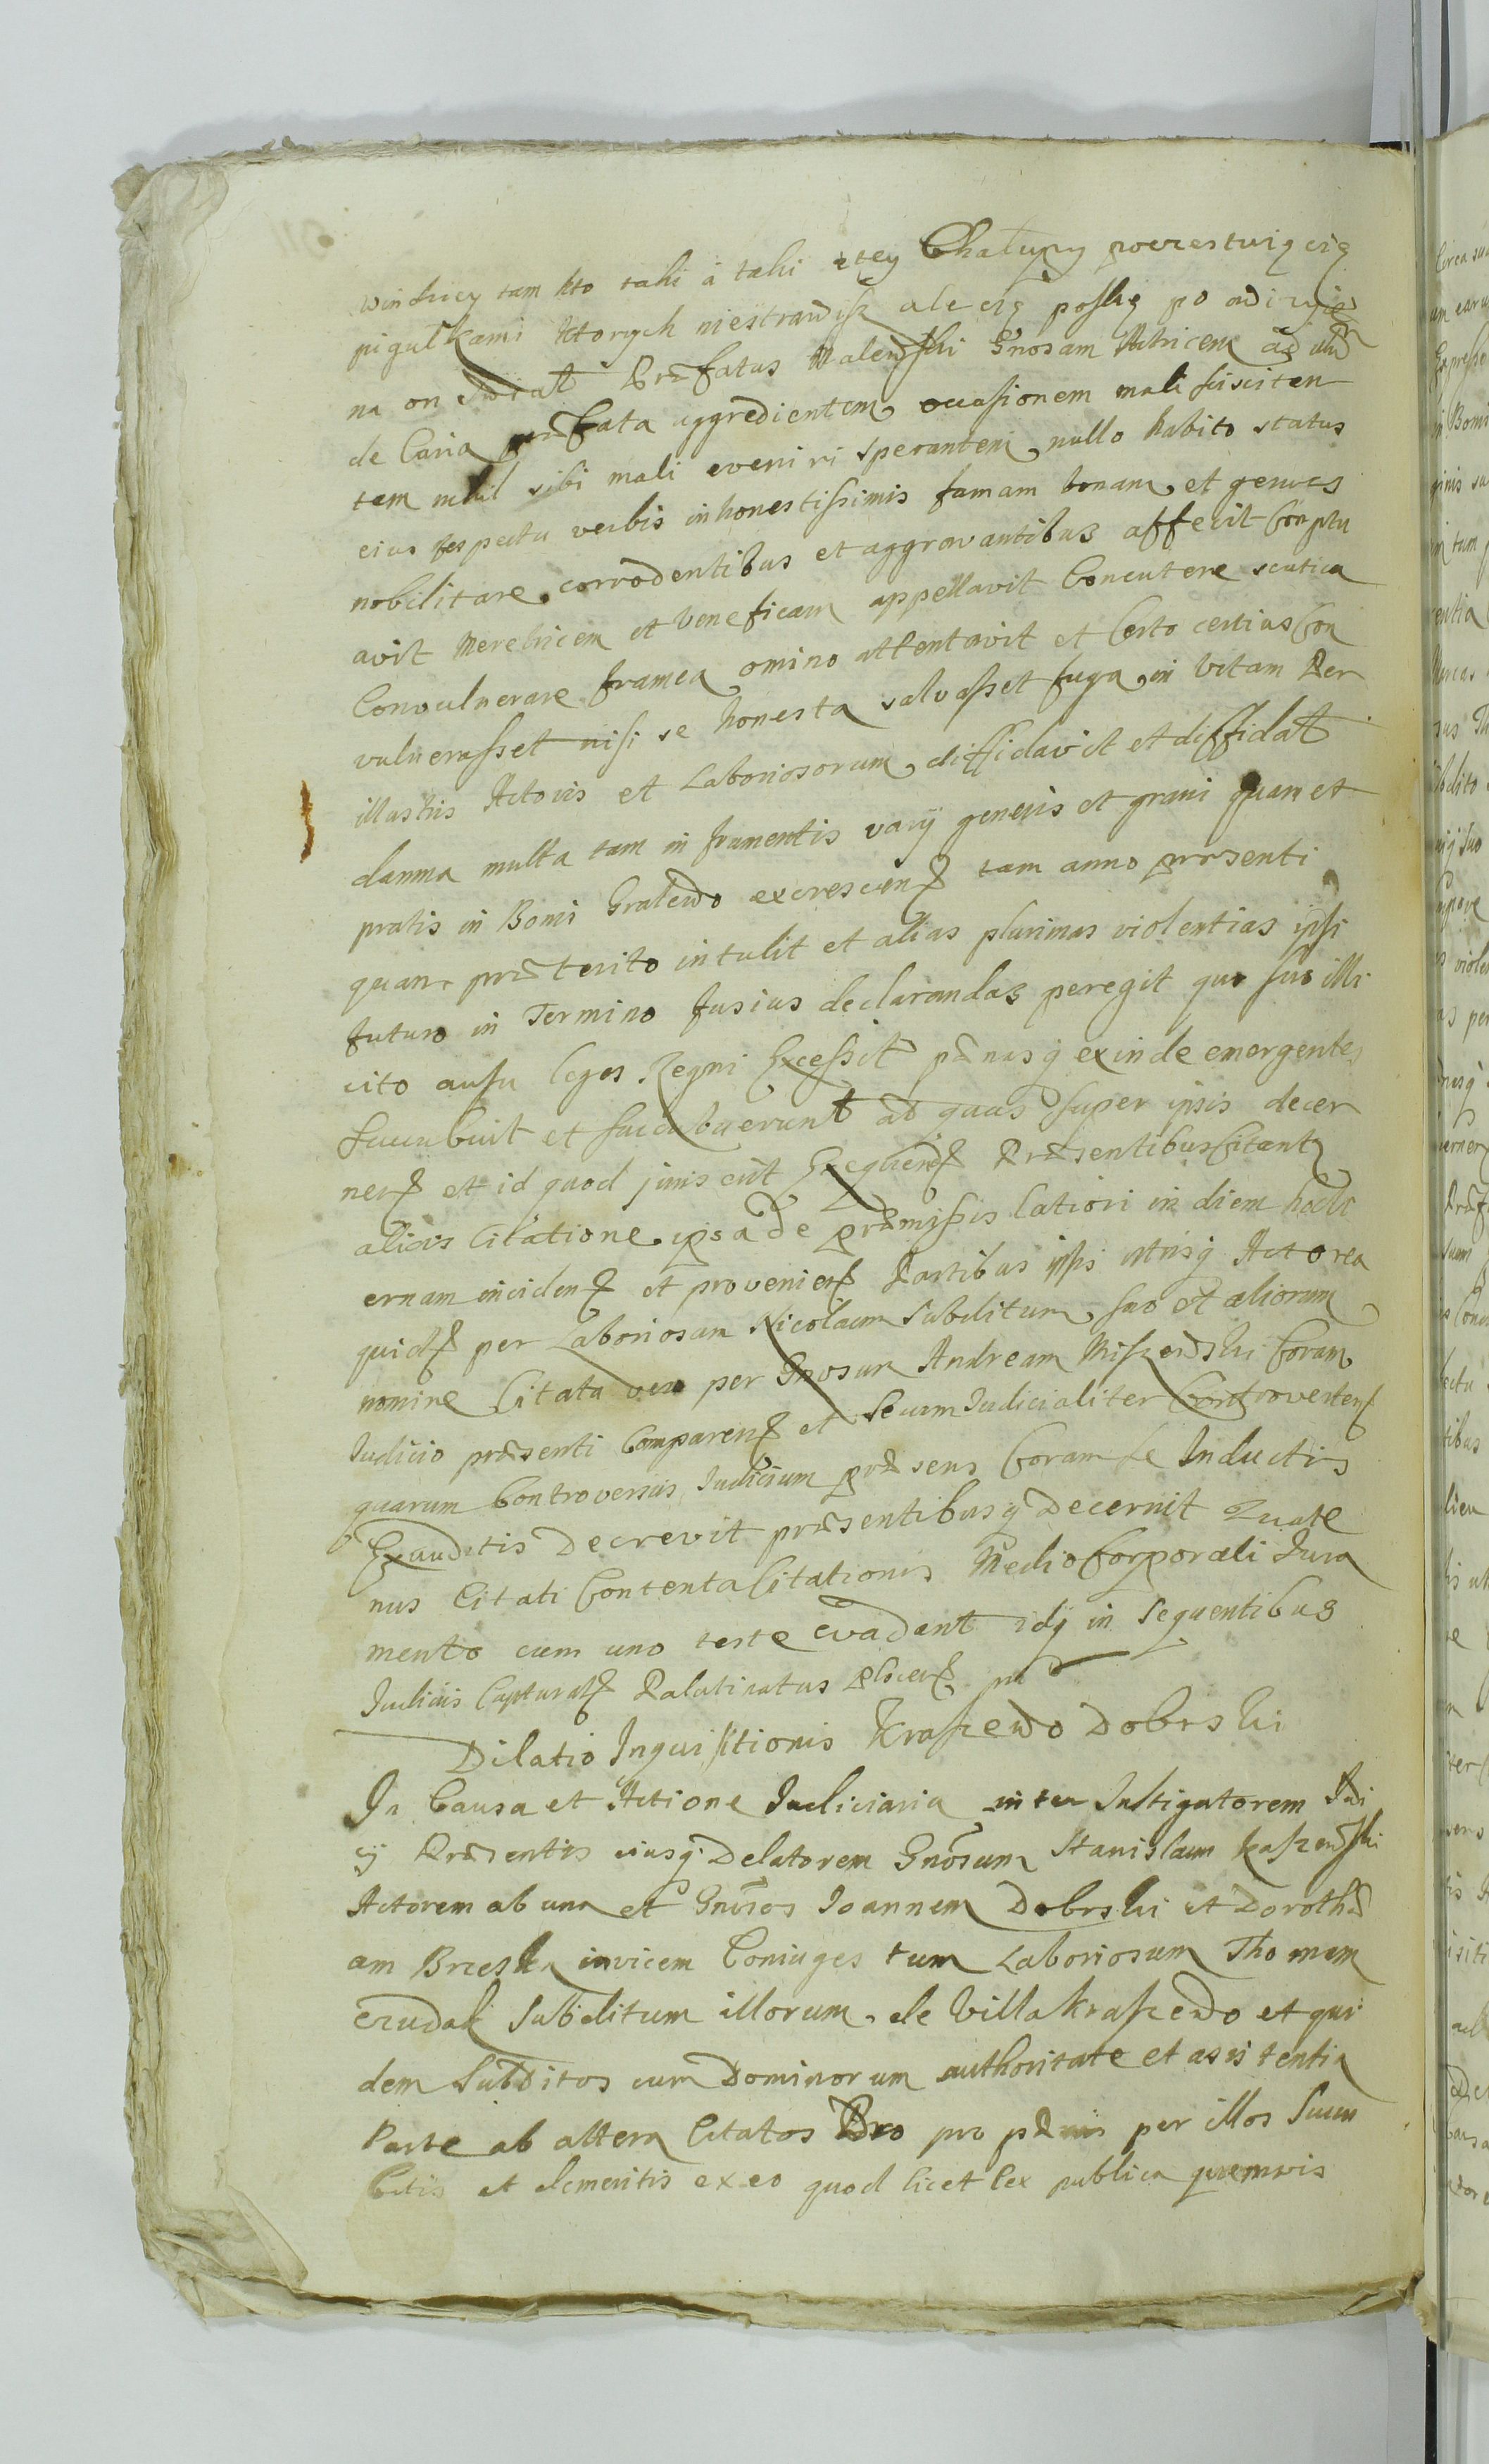 winkiey tam kto taki á taki ztey Chałupy powrestwią cię
pigułkami ktorych niestrawisz ale cię poslię po
na on Præfatus Malewski Gnosam Actricem ad
de Caria præfata aggredientem occasionem mali sisciten
tem nihil sibi mali eveniri sperantem nullo habito status
eius respectu verbis inhonestissimis famam bonam et genus
nobilitare corrodentibus et aggravantibus affecit Conptu
avit Meretricem et Veneficam appellavit Concutere scutica
Convulnerare framea omino attentavit et Certo certius Con
vulnerasset nisi se honesta salvasset fuga in Vitam Per
illustris Actoris et Laboriosorum diffidavit et diffidat
damna multa tam in frumentis varÿ generis et grani quam et
pratis in Bonis Gralewo excrescen tam anno præsenti
quam præterito intulit et alias plurimas violentias ipsi
futuro in Termino fusius declarandas peregit quo suo illi
cito ausu leges Regni Excessit pænasq exinde emergentes
succubuit et succubuerunt ad quas super ipsis decer
nen et id quod juris erit Exequend Præsentibus Citant
alicis Citatione ipsa de præmissis latiori in diem hodi
ernam inciden et provenien Partibus ipsis utrisq Actorea
quid per Laboriosam Nicolaum Subditum suo et aliorum
nomine Citata vero per Gnosum Andream Miszewski Coram
Judicio præsenti Comparen et Secum Judicialiter Controverten
quarum Controversiis Judicium præsens Coram se Inductis
Exauditis Decrevit præsentibusq Decernit Quate
nus Citati Contenta Citationis Medio Corporali Jura
mento cum uno teste evadant idq in Sequentibus
Judiciis Captural Palatinatus Plocen
Dilatio Inquisitionis Kraszewo Dobrski
In Causa et Actione Judiciaria inter Instigatorem Judi
cÿ Præsentis eiusq Delatorem Gnosum Stanislaum Kaszewski
Actorem ab una et Gnosos Joannem Dobrski et Dorothæ
am Brzeska invicem Coniuges tum Laboriosum Thomam
Czudak Subditum illorum de Villa Kraszewo et qui
dem Subditos cum Dominorum authoritate et assistentia
Parte ab altera Citatos Pro pro pænis per illos Succu
bitis et demeritis ex eo quod licet lex publica quemvis